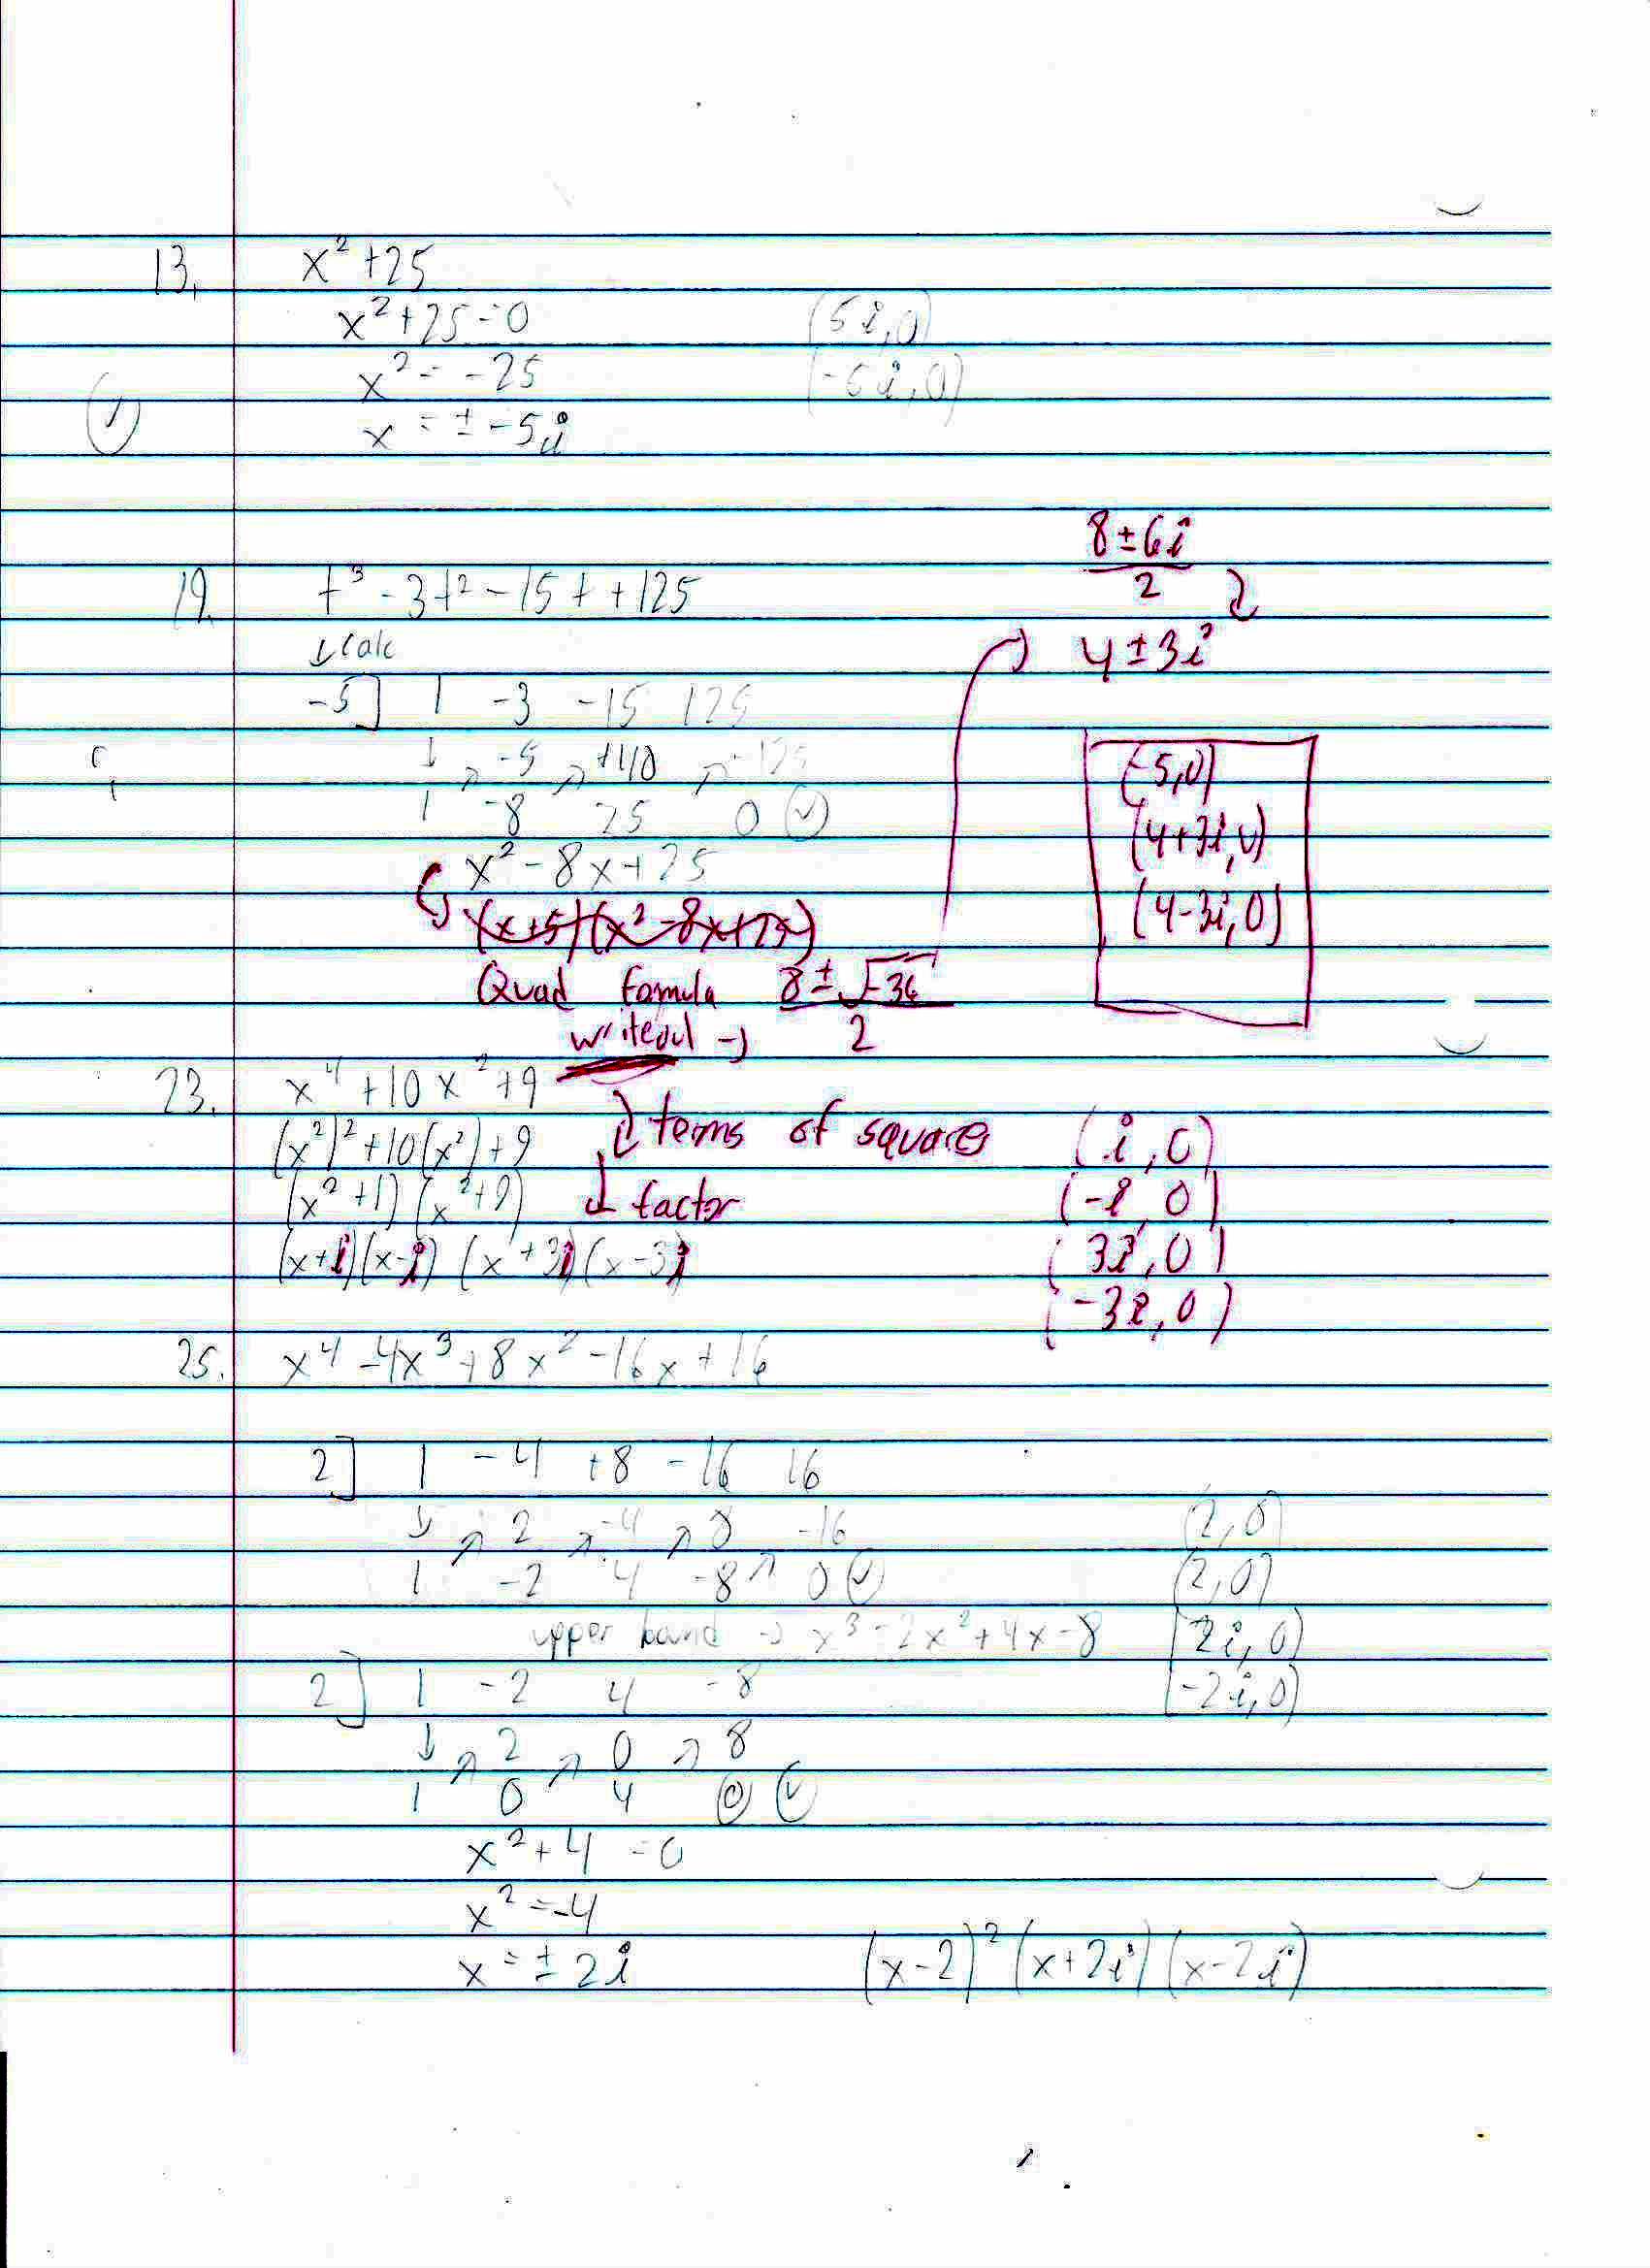 13. x² + 25
x² + 25 = 0 (5i, 0)
x² = -25 (-5i, 0)
x = ± -5i
19. t³ - 3t² - 15t + 125
↓ Calc
-5] 1 -3 -15 125
↓ ↗ -5 ↗ +40 ↗ -125
1 -8 25 0 ✓
x² - 8x + 25
(x+5)(x² - 8x + 25)
Quad formula (8 ± √-36)/2
(8 ± 6i)/2
4 ± 3i
(-5, 0)
(4+3i, 0)
(4-3i, 0)
writeout →
23. x⁴ + 10x² + 9
(x²)² + 10(x²) + 9 terms of squares (i, 0)
(x² + 1)(x² + 9) ↓ factor (-i, 0)
(x+i)(x-i)(x+3i)(x-3i (3i, 0)
(-3i, 0)
25. x⁴ - 4x³ + 8x² - 16x + 16
2] 1 -4 +8 -16 16
↓ ↗ 2 ↗ -4 ↗ 8 -16 (2, 0)
1 -2 4 -8 ↗ 0 ✓ (2, 0)
upper bound → x³ - 2x² + 4x - 8 (2i, 0)
2] 1 -2 4 -8 (-2i, 0)
↓ ↗ 2 ↗ 0 ↗ 8
1 0 4 0 ✓
x² + 4 = 0
x² = -4
x = ± 2i (x-2)² (x+2i)(x-2i)